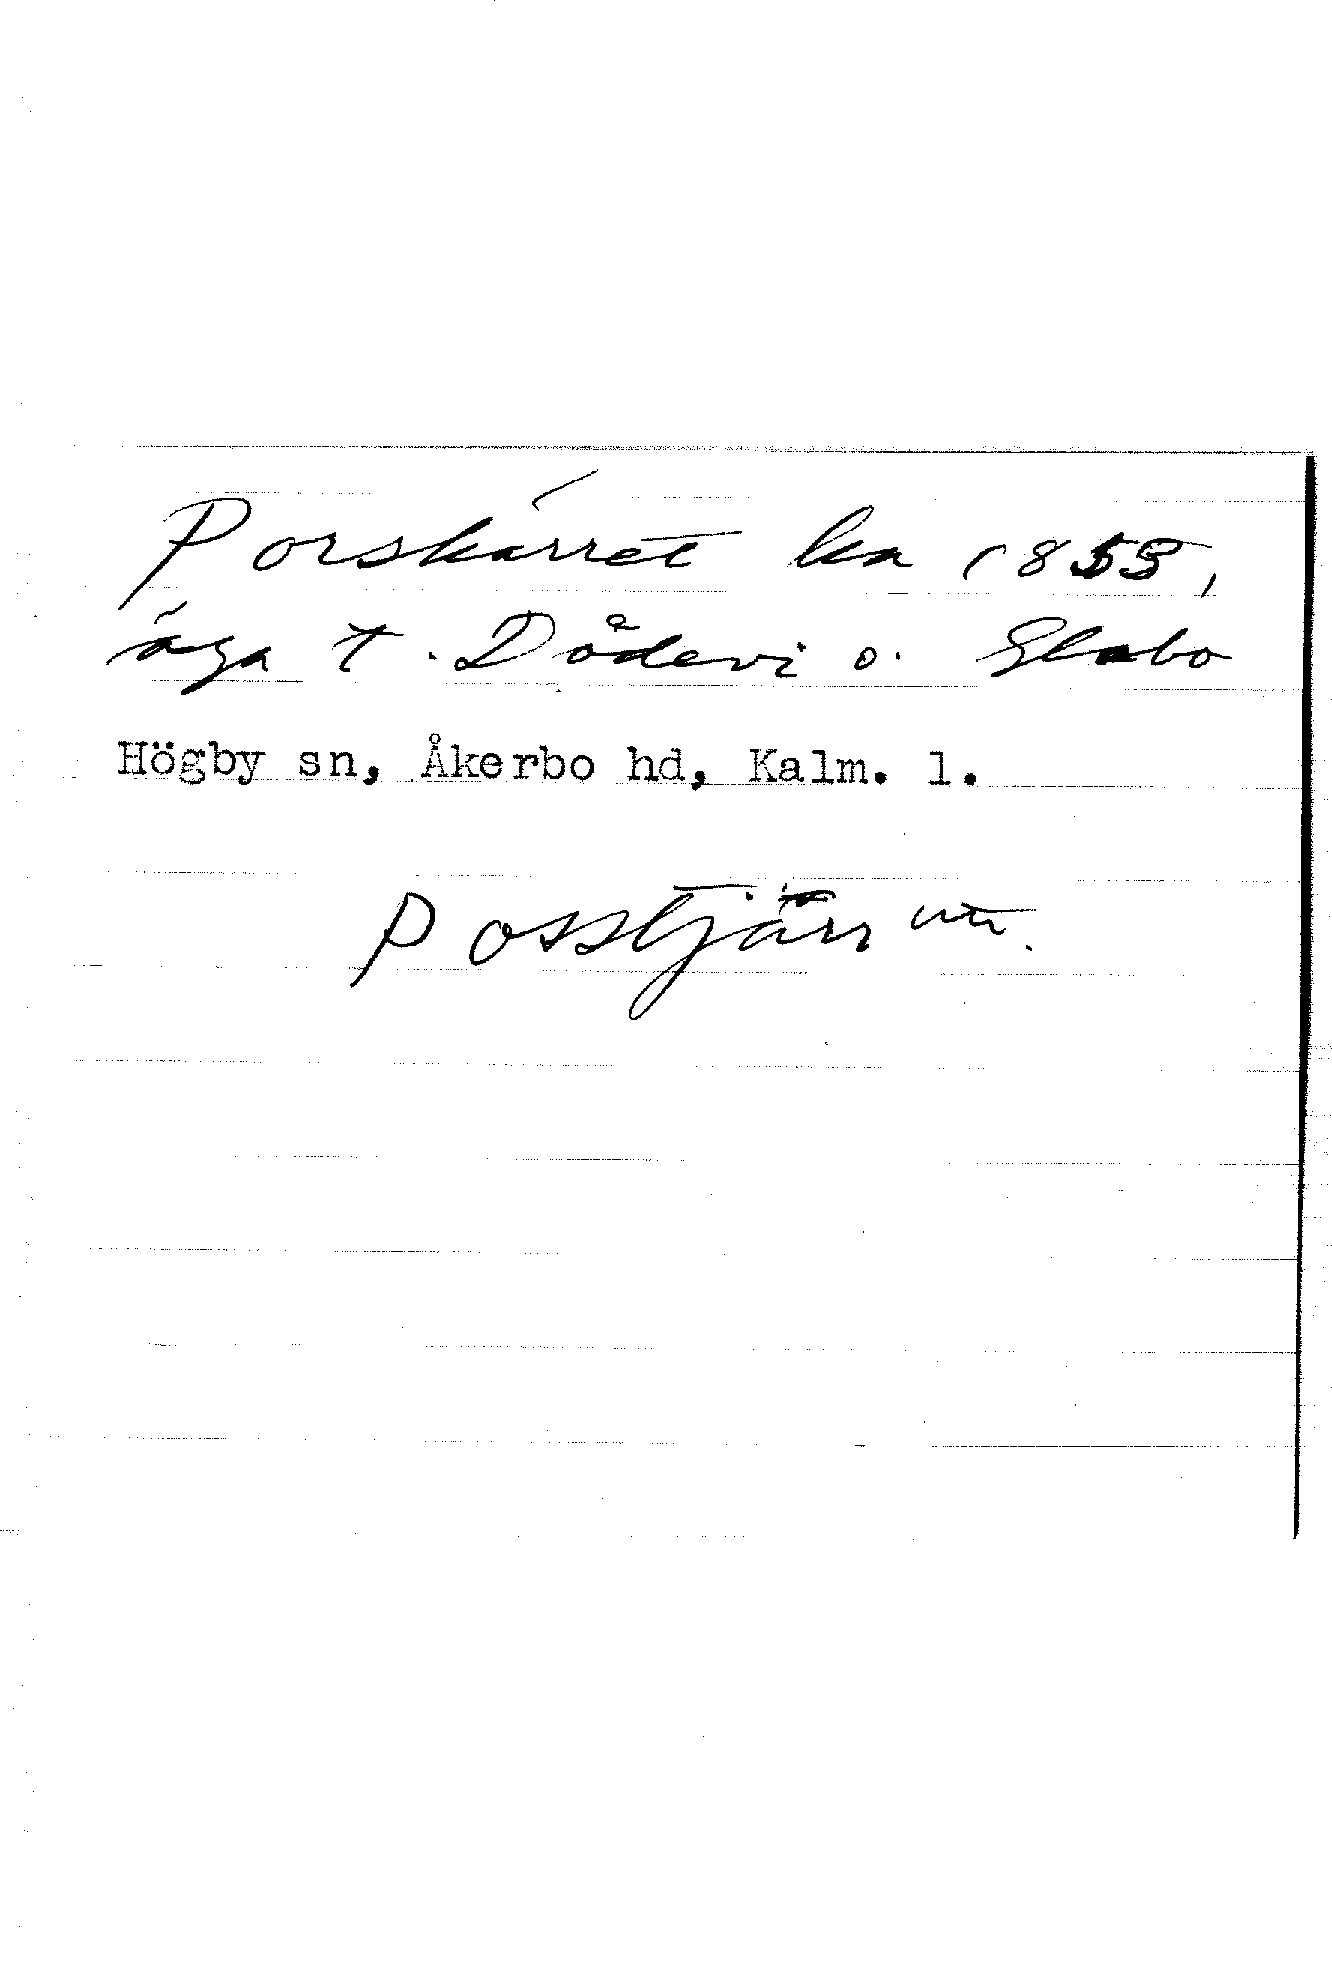 Porskärret ka 1853,
äga t. Dödevi o. Glabo
Högby sn, Åkerbo hd, Kalm. l.
posstjärr